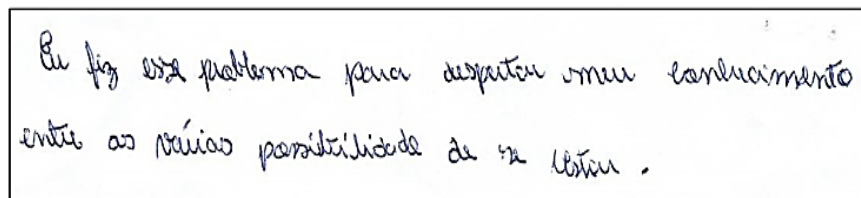 Eu fiz esse problema para despertar meu conhecimento
entre as várias possibilidade de se testar.